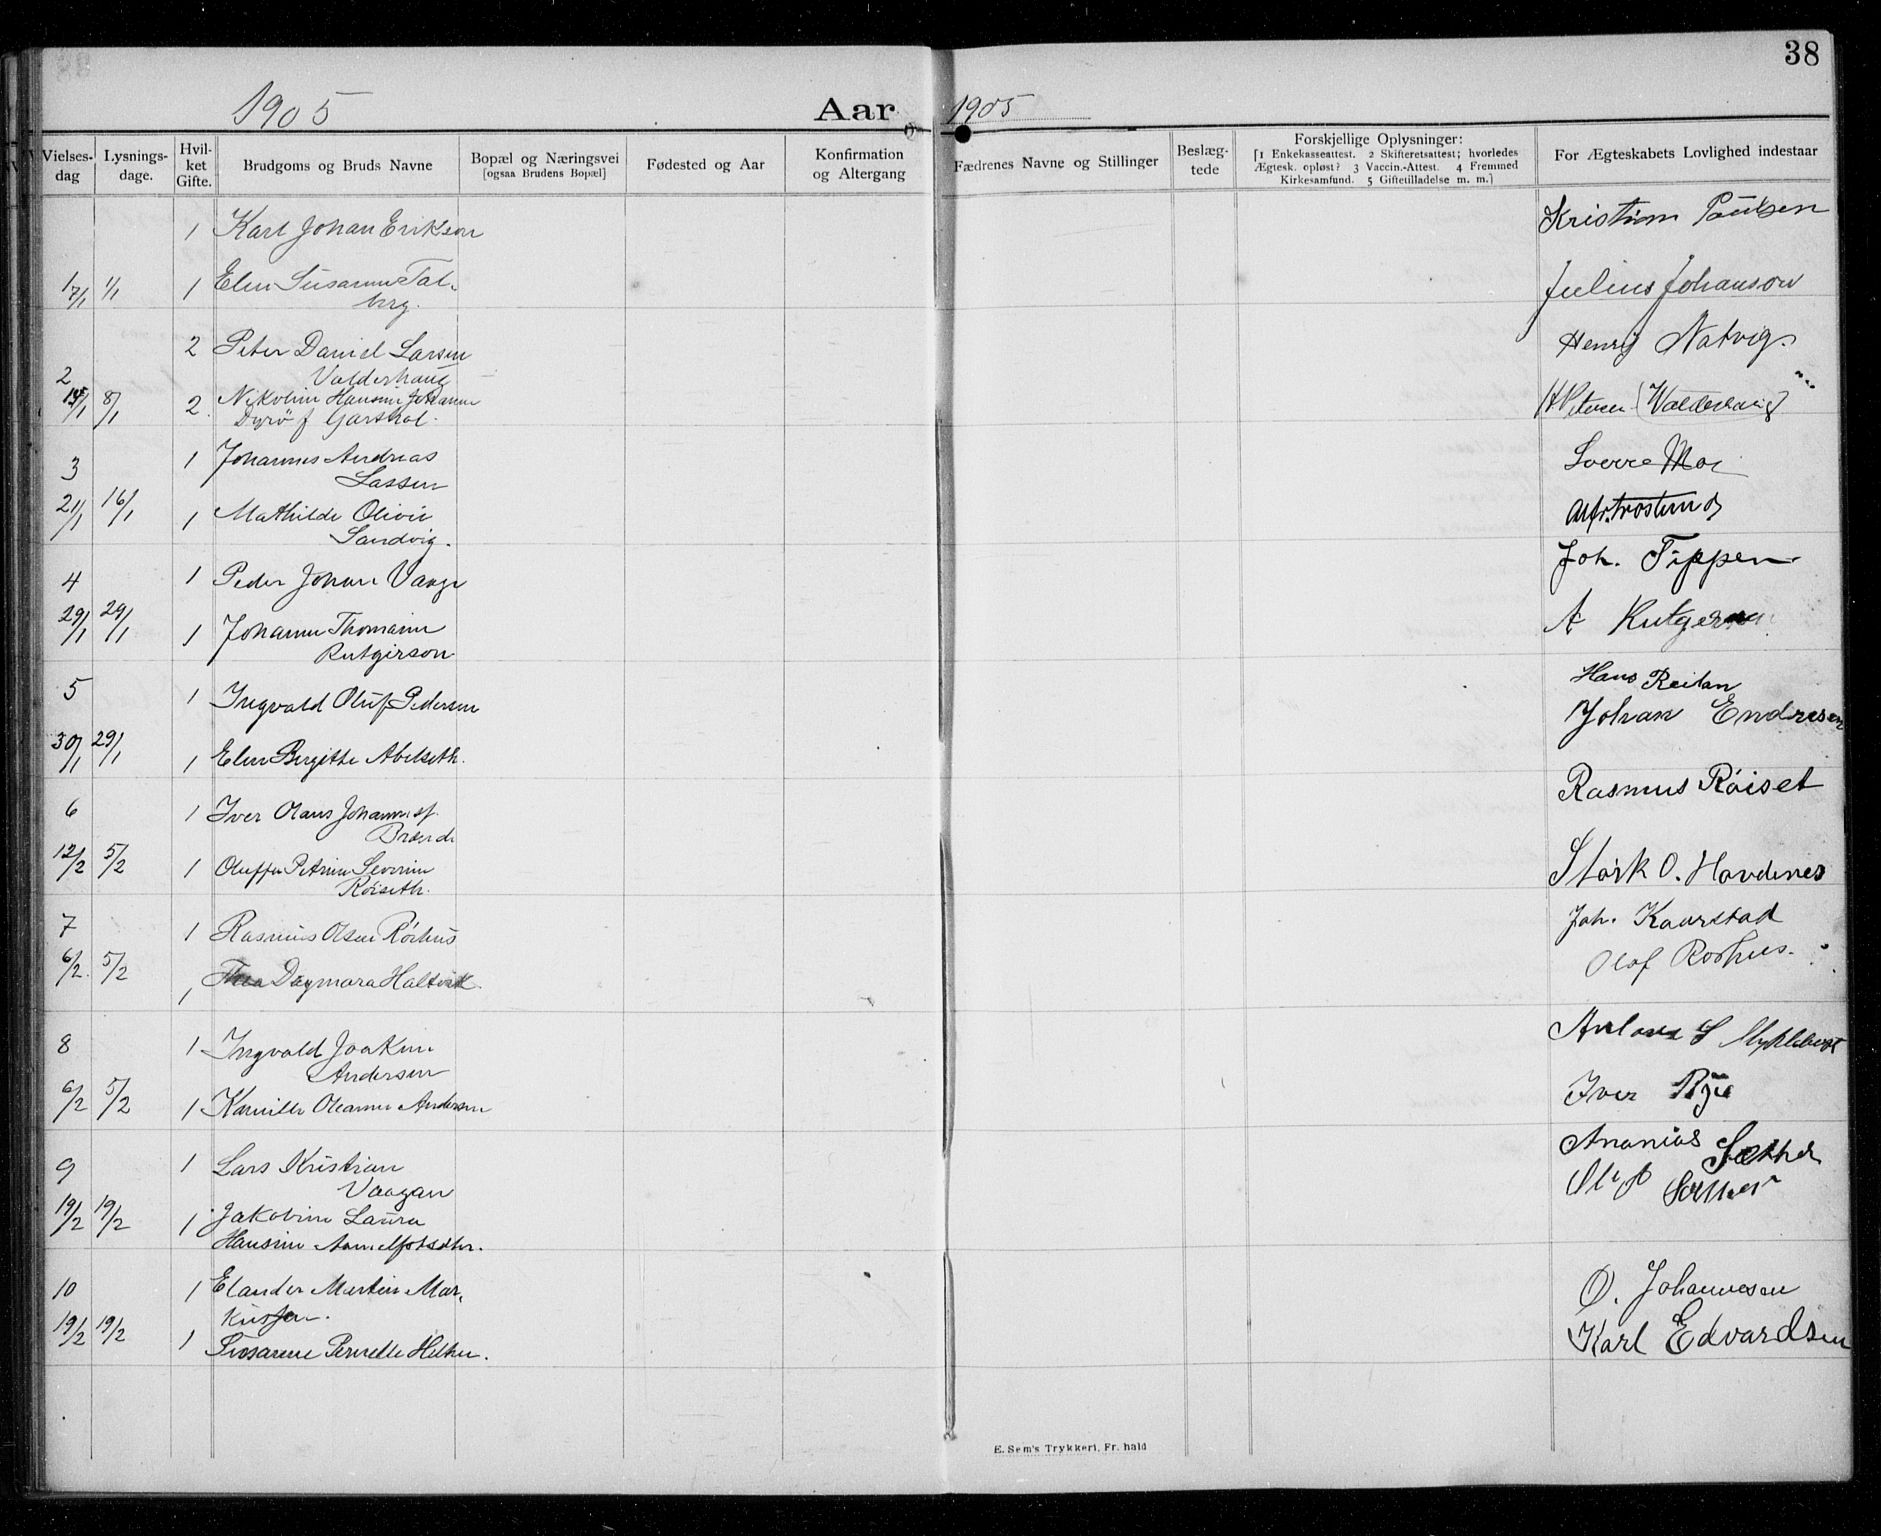 38
1905 Aar 1905
Vielses-dag
Lysnings-dage.
Hvil-ket Gifte.
Brudgoms og Bruds Navne
Bopæl og Næringsvei
[ogsaa Brudens Bopæl]
Fødested og Aar
Konfirmation
og Altergang
Fædrenes Navne og Stillinger
Beslæg-tede
Forskjellige Oplysninger:
[1 Enkekasseattest. 2 Skifteretsattest; hvorledes
Ægtesk. opløst? 3 Vaccin.-Attest. 4 Fremmed
Kirkesamfund. 5 Giftetilladelse m. m.]
For Ægteskabets Lovlighed indestaar
1 Karl Johan Erikson Kristian Paulsen
1 17/1 1/1 1 Elen Susanne Tal-
berg. Julius Johanson
2 Peter Daniel Larsen Henry Natvig
2 Valderhaug
15/1 8/1 2. Nikoline Hansine Johanne
Dyrø f Garshol. Petersen (Walderhaug)
3 1 Johannes Andreas Sverre Moe
Lassen
21/1 16/1 1 Mathilde Olivie
Sandvig.
4 1 Peder Johan Vaage Joh. Tippen
29/1 29/1 1 Johanne Thomine A Rutgerson
Rutgerson
5 1 Ingvald Oluf Pedersen Hans Reitan
Johan Endresen
30/1 29/1 1 Elen Birgitte Abelseth.
6 1 Iver Olaus Johannes f. Rasmus Röiset
Brænde
12/2 5/2 1 Oluffa Petrine Severine Stark O. Havdenes
Röiseth.
7 1 Rasmus Olsen Rörhus Joh. Kaarstad
6/2. 5/2 1 Thea Dagmara Haltvik. Olaf Rorhus.
8 1 Ingvald Joakim Myklebust
Andersen
6/2 5/2 1 Kamille Oleanne Andersen Iver Rye
9 1 Lars Kristian Ananias Sæther
Vaagan
19/2 19/2 1 Jakobine Laura Sæther
Hansine
10 1 Elander Martin Mar- O. Johannesen
kussen.
19/2 19/2 1 Susanne Pernelle Helsen. Karl Edvardsen
E. Sem's Trykkeri, Fr. hald